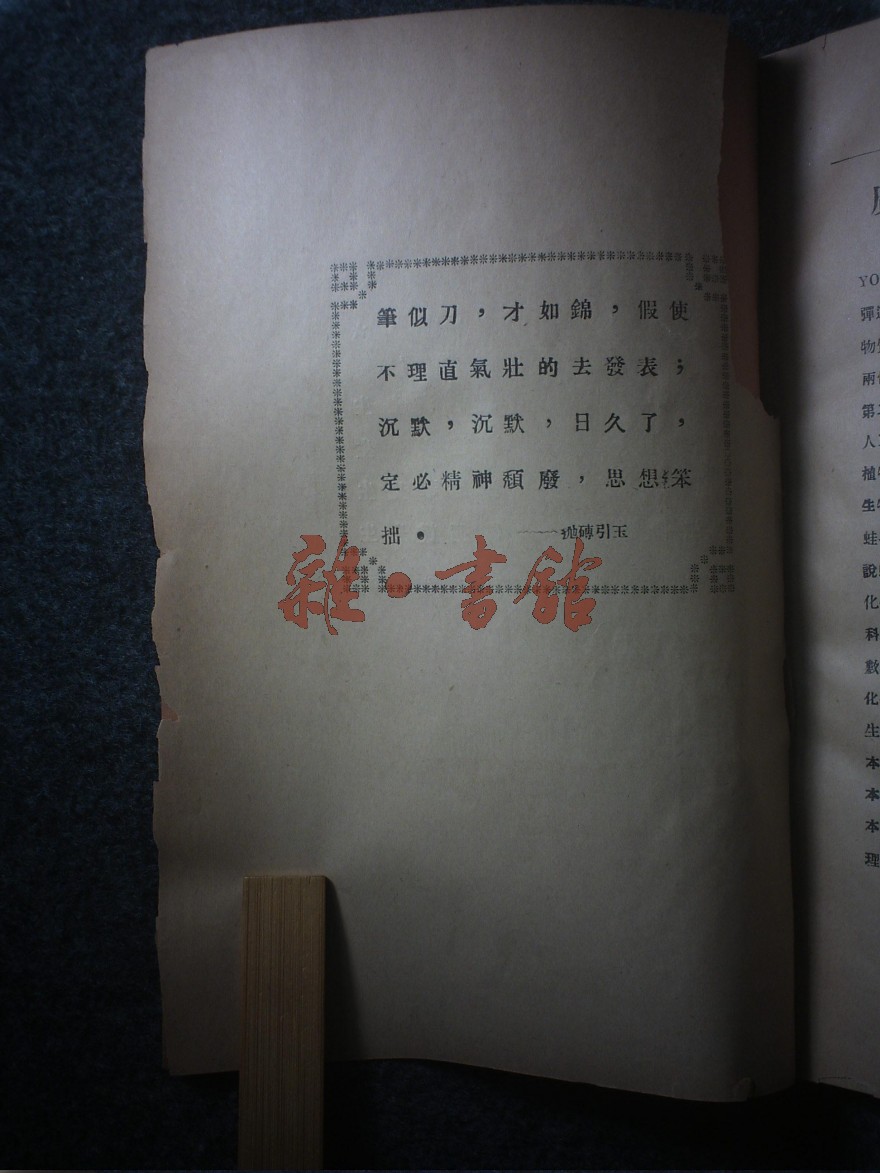 筆似刀，才如錦，假使
不理直氣壯的去發表；
沉默，沉默，日久了，
定必精神頹廢，思想笨
拙。
——拋磚引玉
雜·書館
YO
彈
物
兩
第
人
植
生
蛙
說
化
科
數
化
生
本
本
本
理